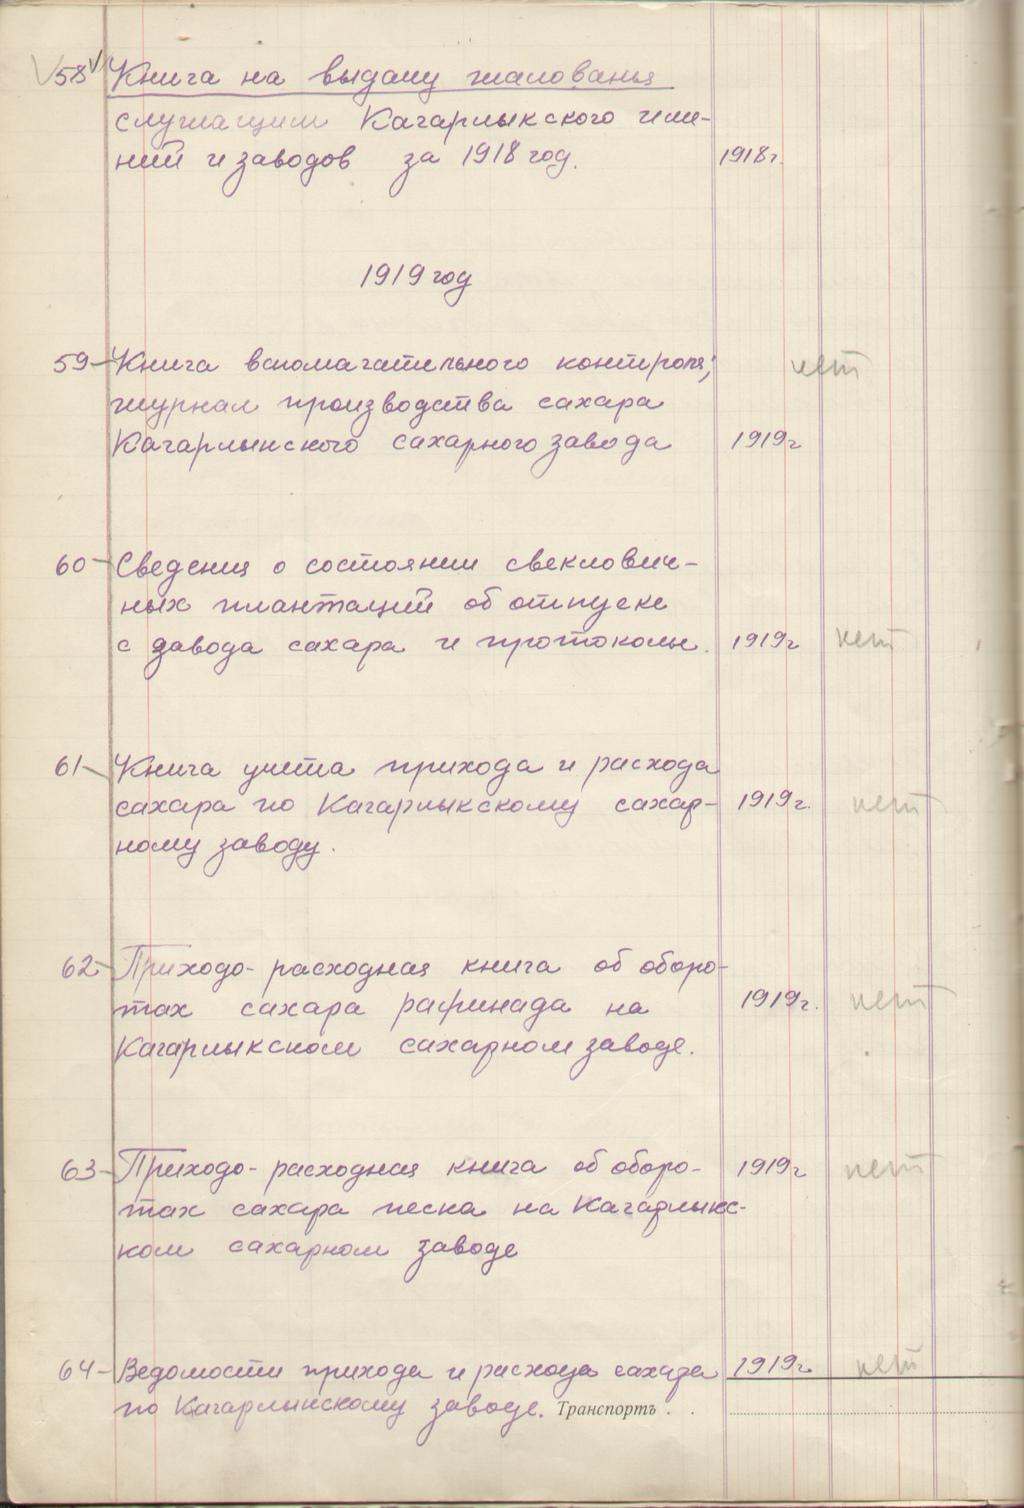 58 Книга на выдачу жалованья
служащим Кагарлыкского име-
ний и заводов за 1918 год. 1918 г.
1919 год
59 Книга вспомагательного контроля; нет
журнал производства сахара
Кагарлыкского сахарного завода 1919 г
60 Сведения о состоянии свеклович-
ных плантаций об отпуске
с завода сахара и протоколы. 1919 г нет
61 Книга учета прихода и расхода
сахара по Кагарлыкскому сахар- 1919 г. нет
ному заводу.
62 Приходо-расходная книга об оборо-
тах сахара рафинада на 1919 г. нет
Кагарлыкском сахарном заводе.
63 Приходо-расходная книга об оборо- 1919 г нет
тах сахара песка на Кагарлыкс-
ком сахарном заводе
64 Ведомости прихода и расхода сахара 1919 г. нет
по Кагарлыкскому заводе. Транспортъ . .